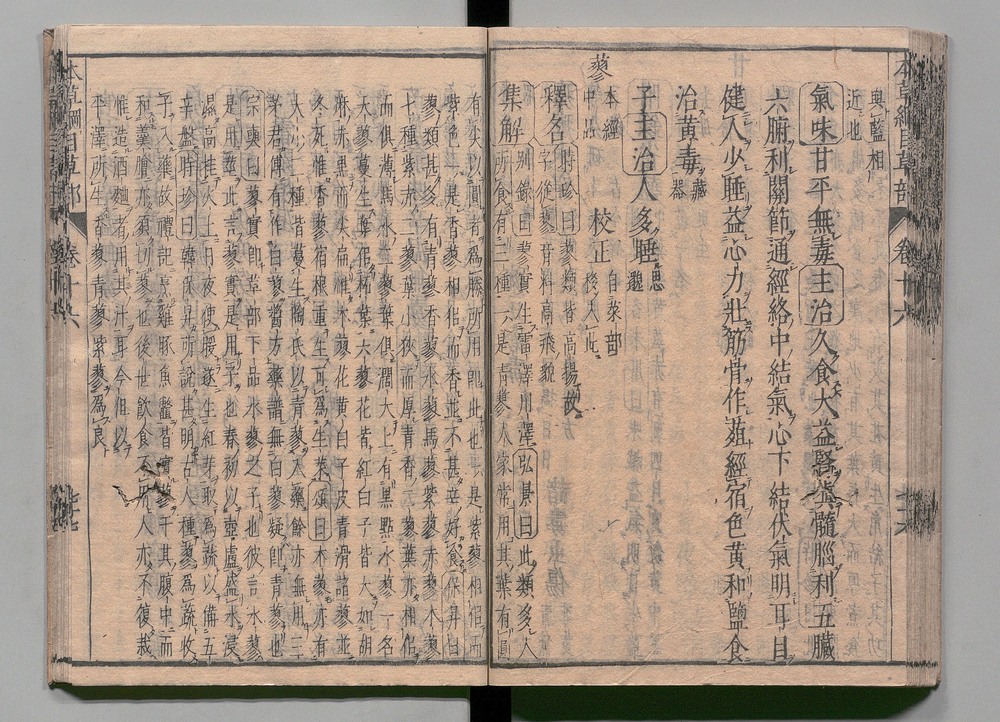 本草綱目草部 卷十六
與藍相
近也
氣味甘平無毒主治久食大益腎填髓腦利五臟
六腑利關節通經絡中結氣心下結伏氣明耳目
健人少睡益心力壯筋骨作葅經宿色黄和鹽食
治黄毒藏器
子主治人多睡思邈
蓼本經中品 校正自菜部移入此
釋名時珍曰蓼類皆高揚故
字從蓼音料高飛貌
集解別録曰蓼實生雷澤川澤弘景曰此類多人
所食有三種一是青蓼人家常用其葉有圓
有尖以圓者爲勝所用即此也一是紫蓼相似而
紫色一是香蓼相似而香並不甚辛好食保昇曰
蓼類甚多有青蓼香蓼水蓼馬蓼紫蓼赤蓼木蓼
七種紫赤二蓼葉小狹而厚青香二蓼葉亦相似
而俱薄馬水二蓼葉俱闊大上有黒點木蓼一名
天蓼蔓生葉似柘葉六蓼花皆紅白子皆大如胡
麻赤黒而尖扁惟木蓼花黄白子皮青滑諸蓼並
冬死惟香蓼宿根重生可爲生菜頌曰木蓼亦有
大小二種皆蔓生陶氏以青蓼入藥餘亦無用三
茅君傳有作白蓼醬方藥譜無白蓼疑即青蓼也
宗奭曰蓼實即草部下品水蓼之子也彼言水蓼
是用莖此言蓼實是用子也春初以壺盧盛水浸
濕高挂火上日夜使煖遂生紅芽取爲蔬以備五
辛盤時珍曰韓保昇所說甚明古人種蓼爲蔬收
子入藥故禮記烹雞豚魚鱉皆實蓼于其腹中而
和羹膾亦須切蓼也後世飲食不用人亦不復栽
惟造酒麯者用其汁耳今但以
平澤所生香蓼青蓼紫蓼爲良
本草綱目草部 卷十六